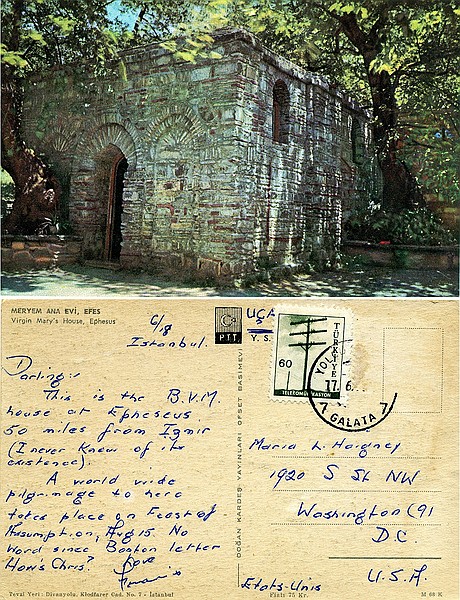 MERYEM ANA EVİ, EFES
Virgin Mary's House, Ephesus
6/18
Istanbul.
Darling:
This is the B.V.M.
house at Epheseus
50 miles from Izmir
(I never Knew of its
existence).
A world wide
pilgrimage to here
takes place on Feast of
Assumption, Aug 15. No
word since Boston letter
How's Chris? Love
Teval Yeri: Divanyolu, Klodfarer Cad. No. 7 - İstanbul
PTT
UÇA
Y. S.
DOĞAN KARDEŞ YAYINLARI OFSET BASIMEVİ
60
TÜRKİYE
17.6
GALATA 7
Maria L. Haigney
1920 S St NW
Washington (9)
D.C.
Etats-Unis
U.S.A.
Fiatı 75 Kr.
M 68 K